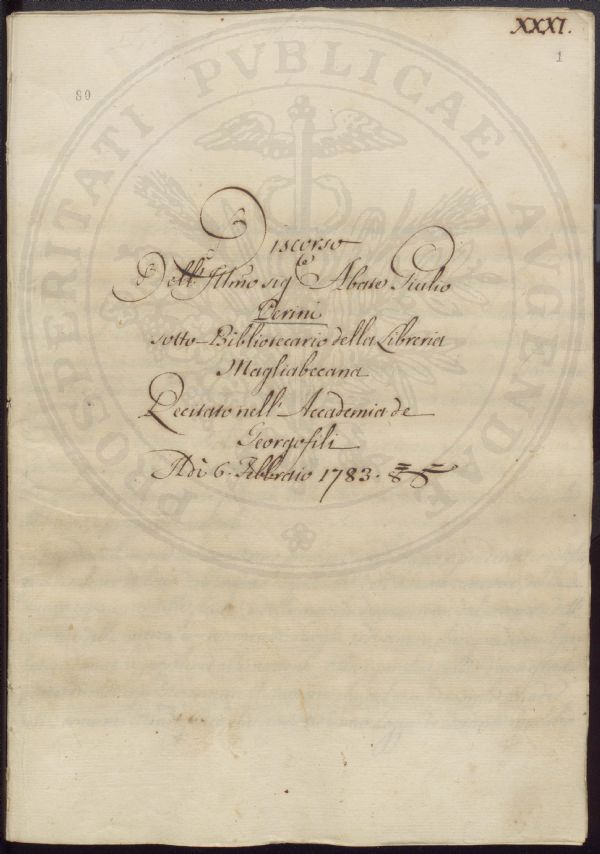 XXXI.
1
80
PROSPERITATI PVBLICAE AVGENDAE
Discorso
Dell'Illmo sigre Abate Giulio
Perini
sotto-Bibliotecario della Libreria
Magliabecana
Recitato nell'Accademia de
Georgofili
Adì 6. Febbraio 1783.